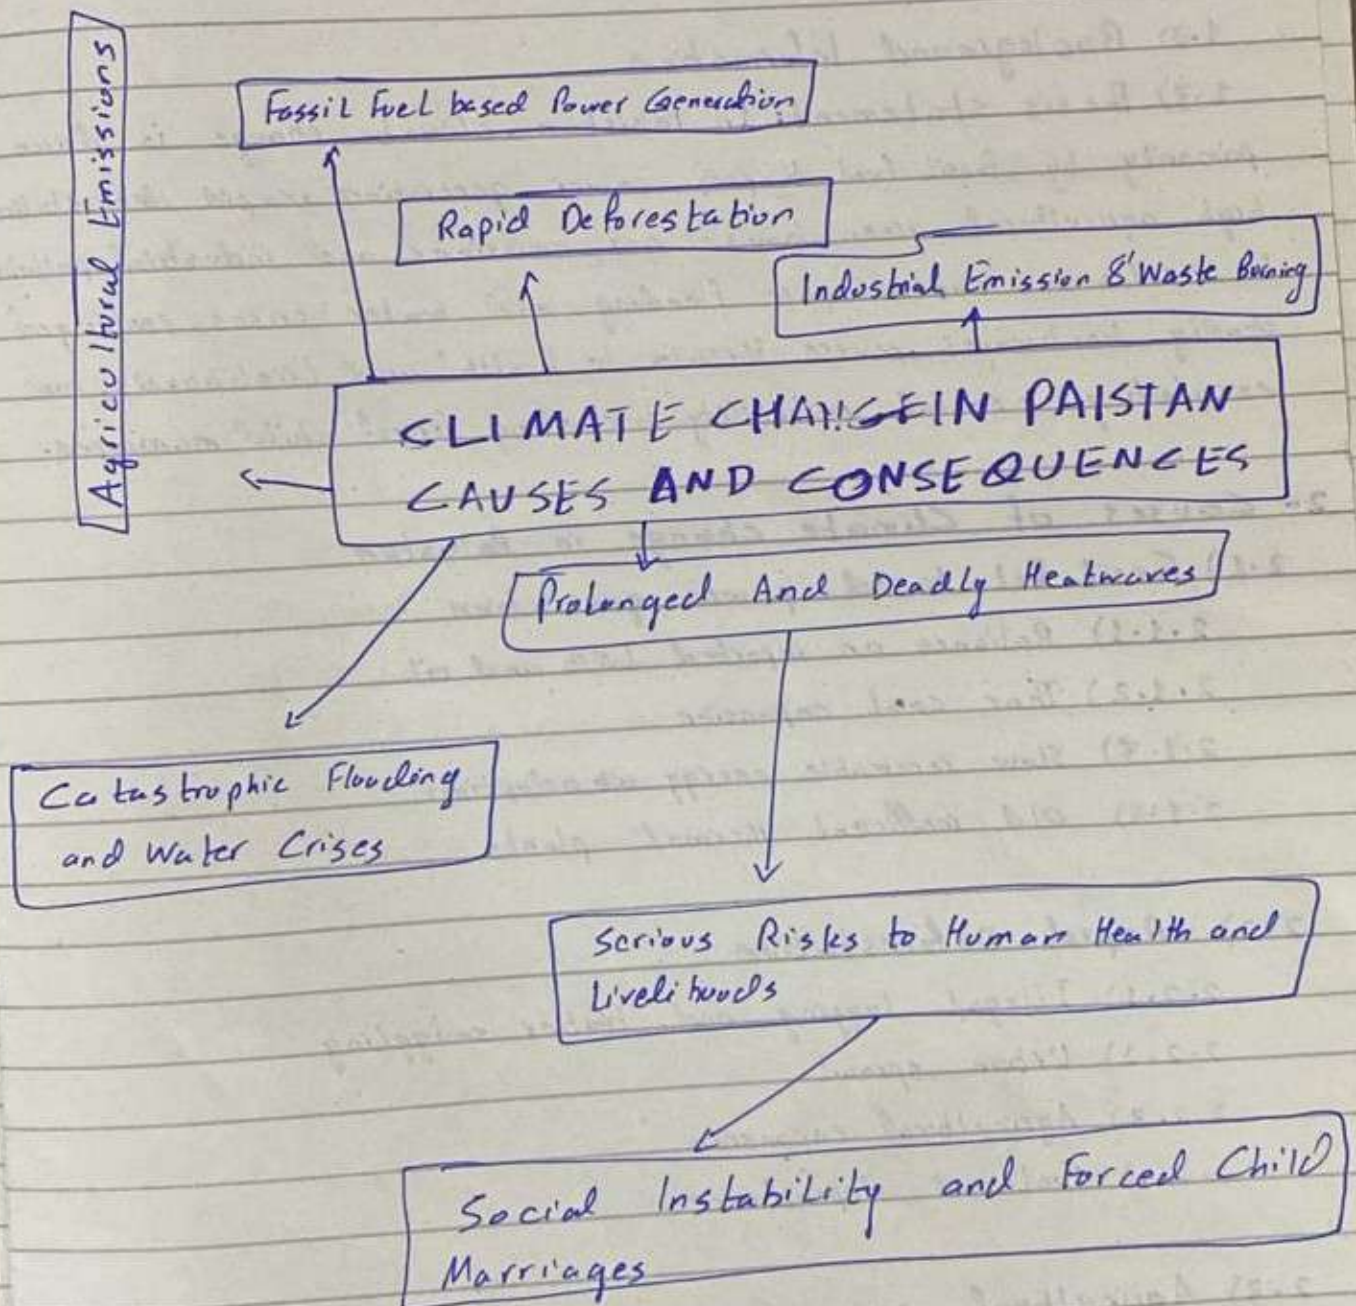 Agricultural Emissions
Fossil Fuel based Power Generation
Rapid Deforestation
Industrial Emission & Waste Burning
CLIMATE CHANGEIN PAISTAN
CAUSES AND CONSEQUENCES
Prolonged And Deadly Heatwaves
Catastrophic Flooding
and Water Crises
Serious Risks to Human Health and
Livelihoods
Social Instability and Forced Child
Marriages